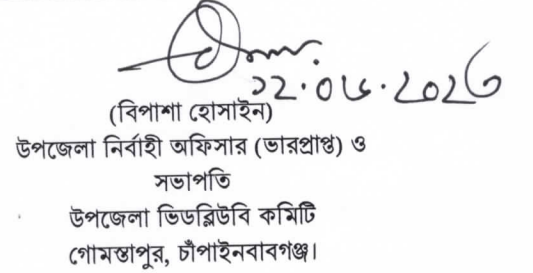 (বিপাশা হোসাইন)
উপজেলা নির্বাহী অফিসার (ভারপ্রাপ্ত) ও
সভাপতি
উপজেলা ভিডব্লিউবি কমিটি
গোমস্তাপুর, চাঁপাইনবাবগঞ্জ।